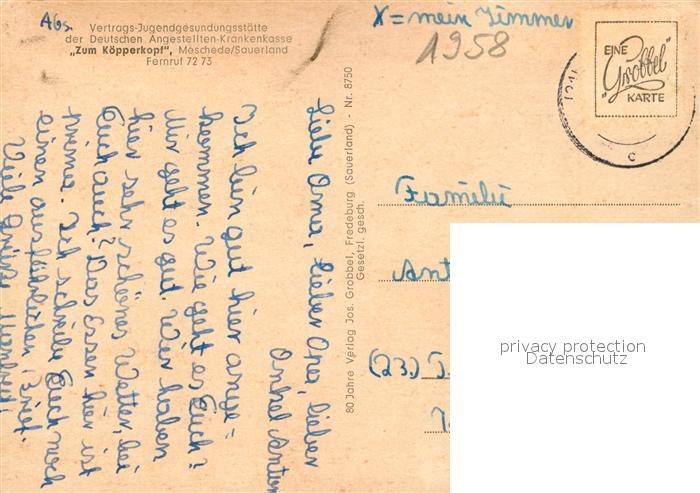 Abs.
Vertrags-Jugendgesundungsstätte
der Deutschen Angestellten-Krankenkasse
„Zum Köpperkopf", Meschede/Sauerland
Fernruf 72 73
X = mein Zimmer
1958
EINE
"Grobbel"
KARTE
Liebe Oma, lieber Opa, lieber
Onkel Anton
Ich bin gut hier ange-
kommen. Wie geht es Euch?
Mir geht es gut. Wir haben
hier sehr schönes Wetter, bei
Euch auch? Das Essen hier ist
prima. Ich schreibe Euch noch
einen ausführlichen Brief.
Viele Grüße
80 Jahre Verlag Jos. Grobbel, Fredeburg (Sauerland) - Nr. 8750
Gesetzl. gesch.
Familie
Ant
(23)
privacy protection
Datenschutz